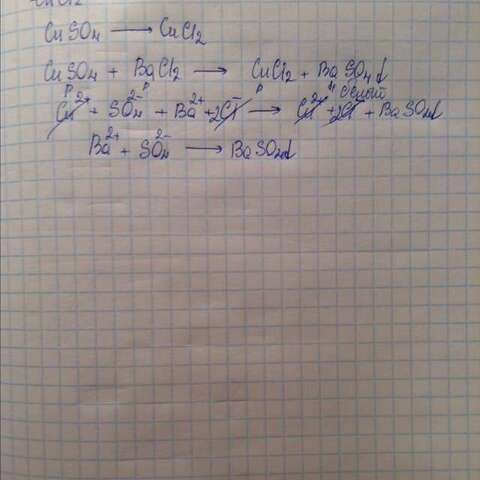 CuCl2
CuSO4 ⟶ CuCl2
CuSO4 + BaCl2 ⟶ CuCl2 + BaSO4↓
р р р н белый
Cu2+ + SO4 2- + Ba2+ + 2Cl- ⟶ Cu2+ + 2Cl- + BaSO4↓
Ba2+ + SO4 2- ⟶ BaSO4↓